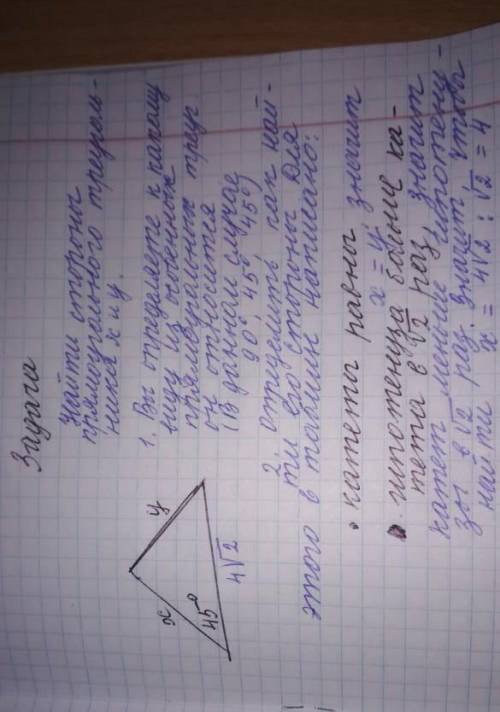 Задача
Найти стороны
прямоугольного треуголь-
ника x и y.
1. Вы определяете к какому
виду из особенных
прямоугольных треуг
он относится
(В данном случае
90°, 45°, 45°)
2. определить как най-
ти его стороны для
этого в таблице написано:
• катеты равны значит
x = y
• гипотенуза больше ка-
тета в √2 раз, значит
катет меньше гипотену-
зы в √2 раз. значит чтобы
найти x = 4√2 : √2 = 4
x
y
45°
4√2